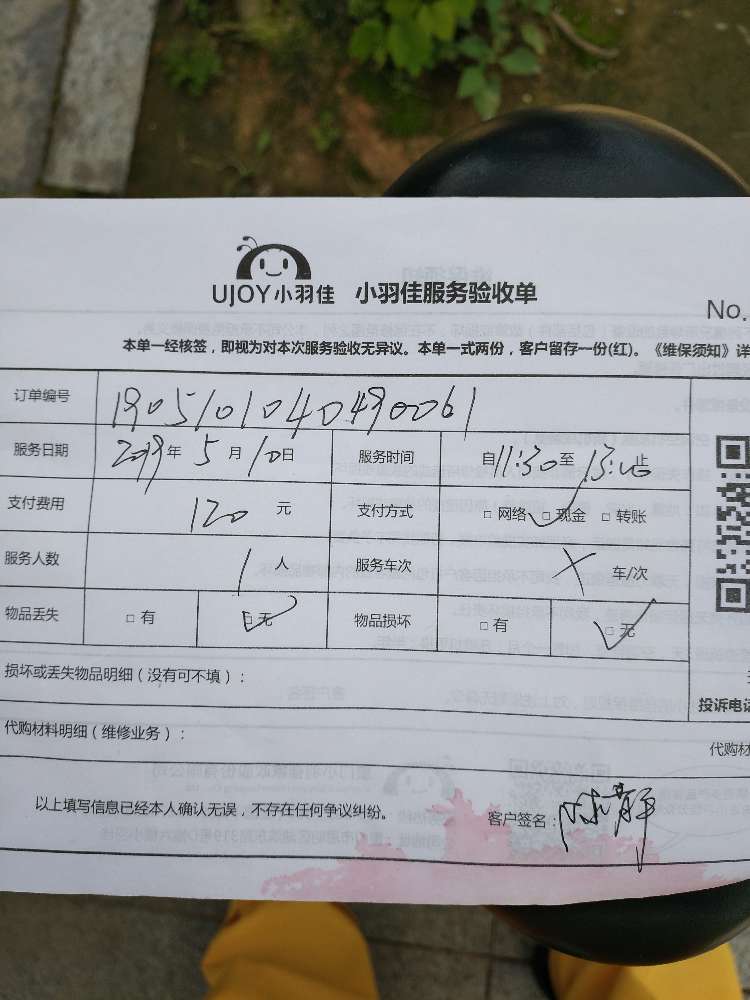 UJOY小羽佳 小羽佳服务验收单
No.
本单一经核签，即视为对本次服务验收无异议。本单一式两份，客户留存一份(红)。《维保须知》详
订单编号 1905101040490061
服务日期 2019年 5月 10日 服务时间 自11:30至13:00止
支付费用 120 元 支付方式 □ 网络 □ 现金 □ 转账
服务人数 1 人 服务车次 × 车/次
物品丢失 □ 有 □ 无 物品损坏 □ 有 □ 无
损坏或丢失物品明细（没有可不填）：
投诉电话
代购材料明细（维修业务）： 代购材
以上填写信息已经本人确认无误，不存在任何争议纠纷。 客户签名：